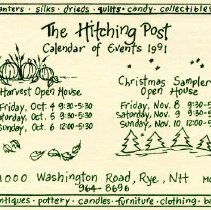 anters · silks · drieds · quilts · candy · collectibles
The Hitching Post
Calendar of Events 1991
Harvest Open House
Friday, Oct. 4 9:30-5:30
Saturday, Oct. 5 9:30-5:30
Sunday, Oct. 6 12:00-5:30
Christmas Sampler
Open House
Friday, Nov. 8 9:30-5:30
Saturday, Nov. 9 9:30-5:30
Sunday, Nov. 10 12:00-5:30
1000 Washington Road, Rye, NH
964-8696
antiques · pottery · candles · furniture · clothing · ba